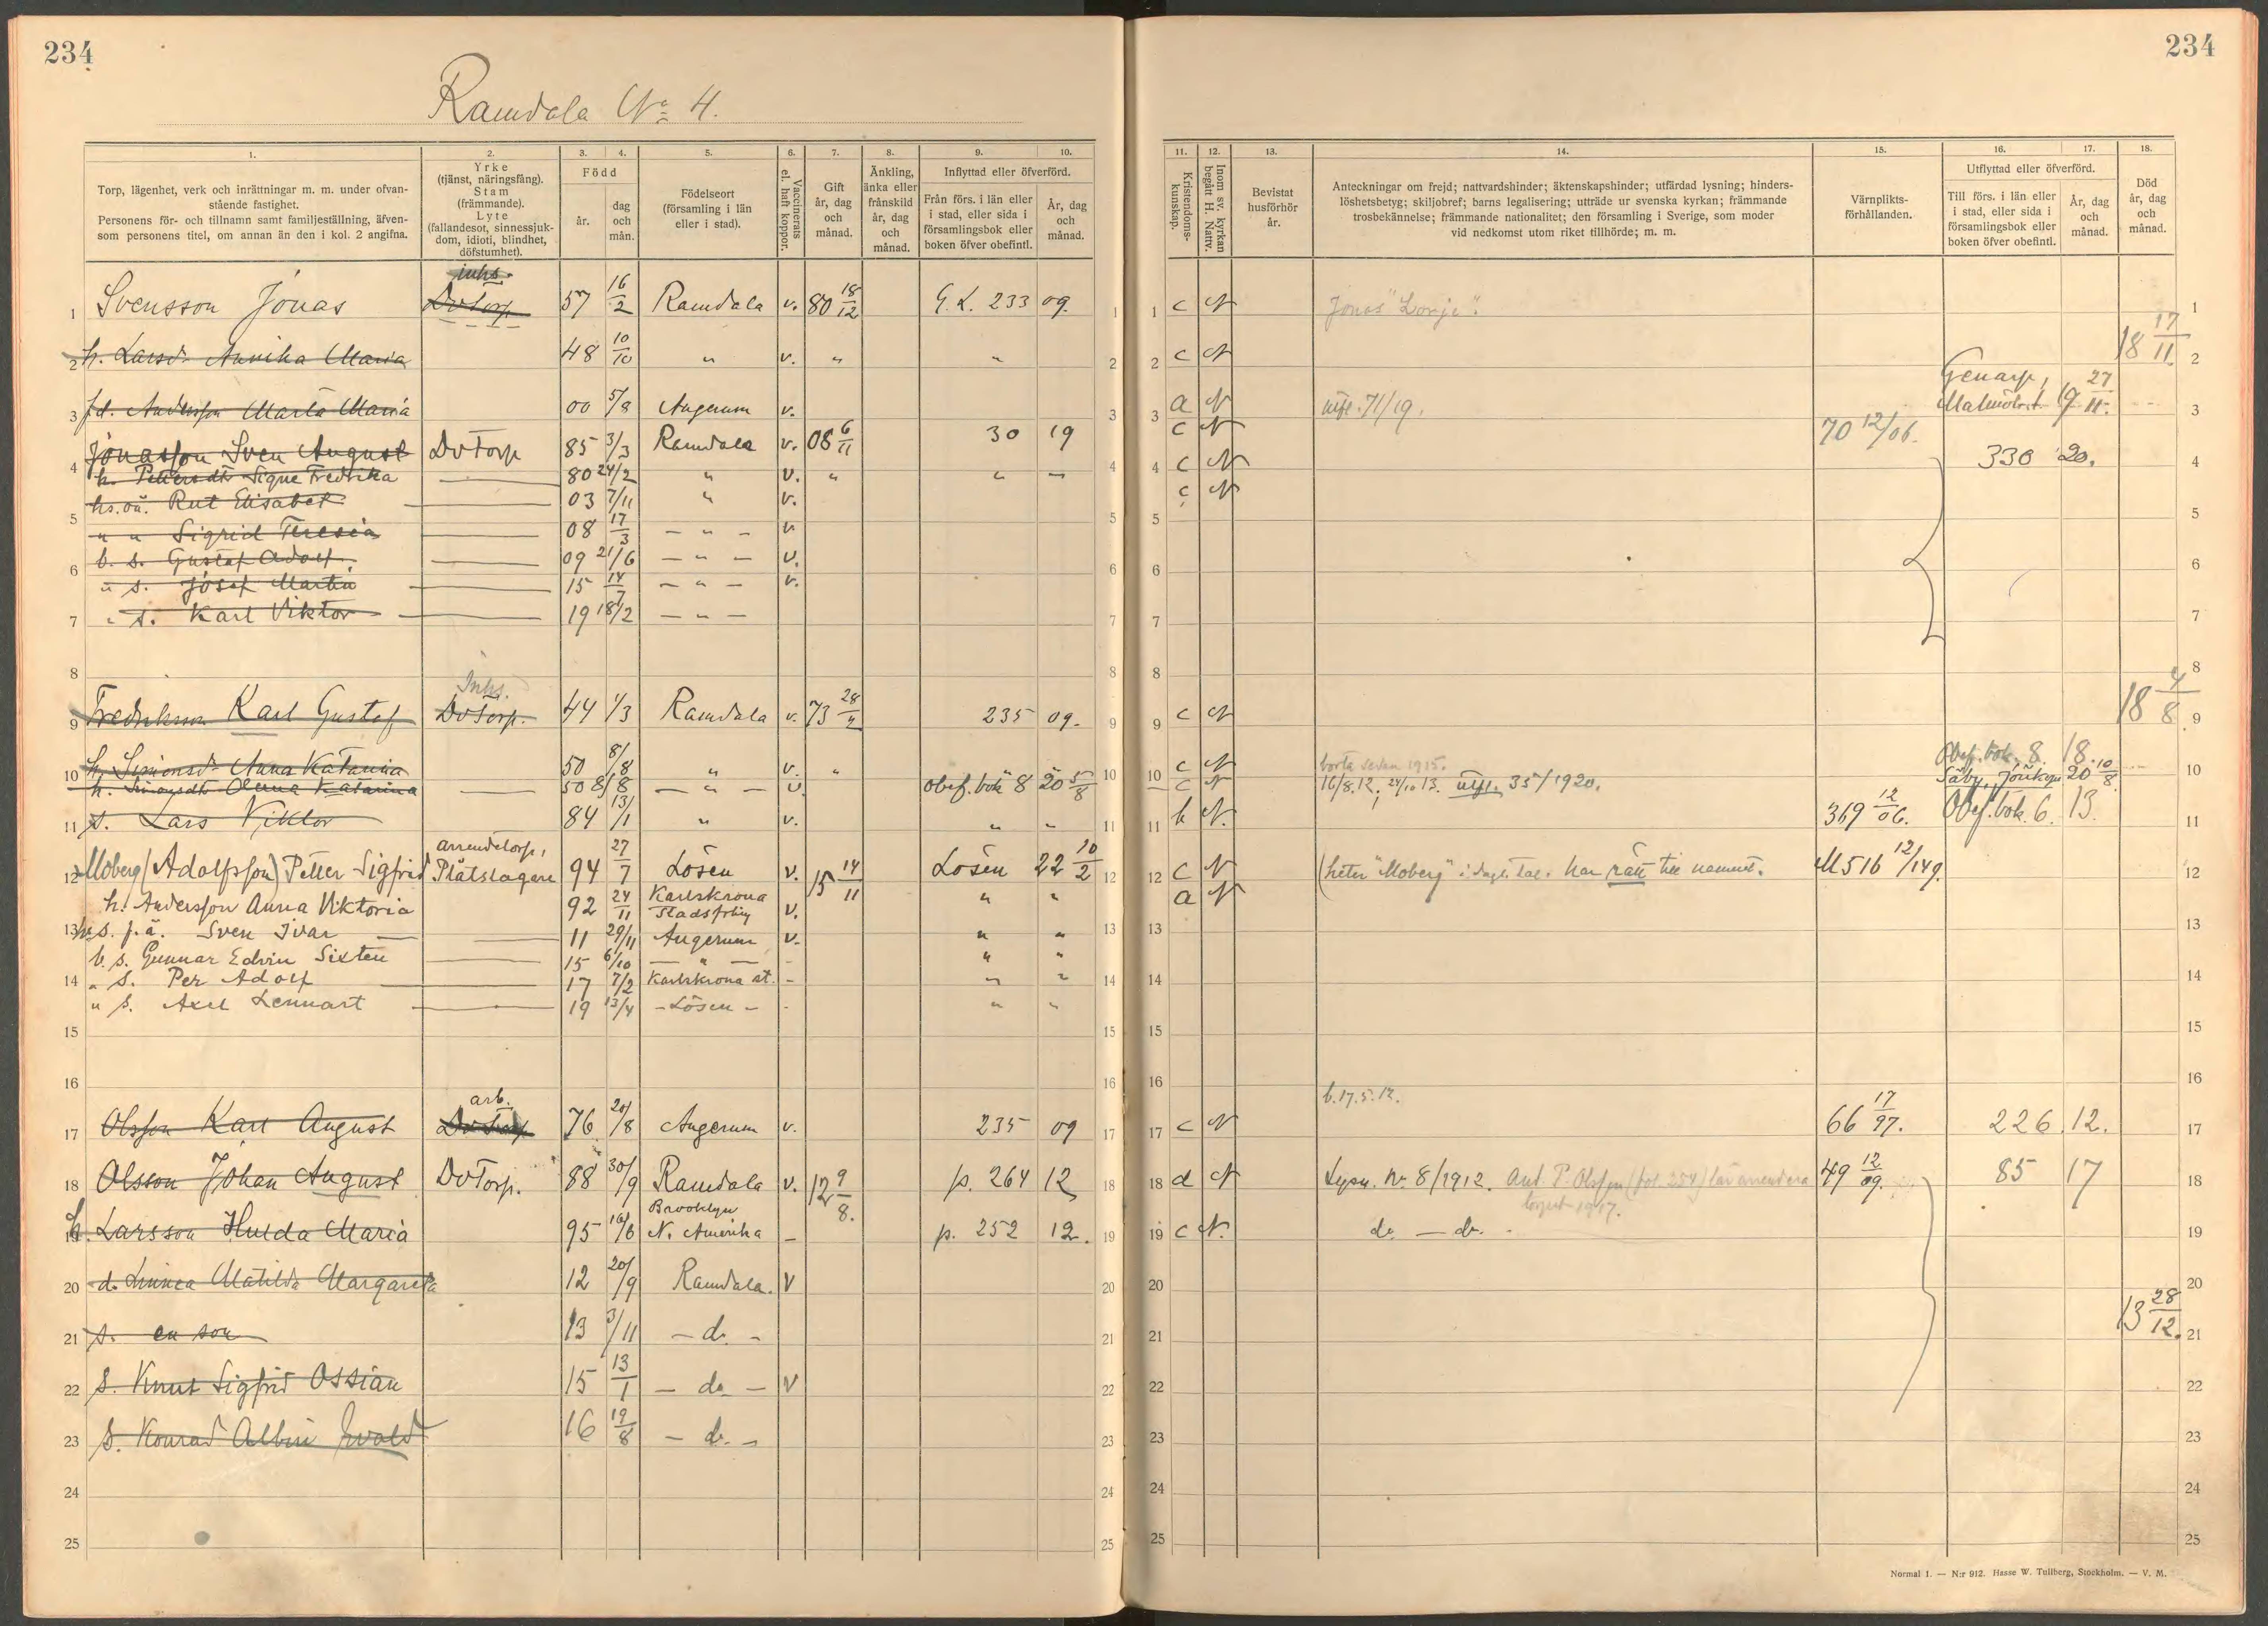 234
234
Ramdala No 4.
1. 2. 3. 4. 5. 6. 7. 8. 9. 10.
Torp, lägenhet, verk och inrättningar m. m. under ofvan-
stående fastighet.
Personens för- och tillnamn samt familjeställning, äfven-
som personens titel, om annan än den i kol. 2 angifna.
Yrke
(tjänst, näringsfång).
Stam
(främmande).
Lyte
(fallandesot, sinnessjuk-
dom, idioti, blindhet,
döfstumhet).
Född
år.
dag
och
mån.
Födelseort
(församling i län
eller i stad).
Vaccinerats
el. haft koppor.
Gift
år, dag
och
månad.
Änkling,
änka eller
frånskild
år, dag
och
månad.
Inflyttad eller öfverförd.
Från förs. i län eller
i stad, eller sida i
församlingsbok eller
boken öfver obefintl.
År, dag
och
månad.
11. 12. 13. 14. 15. 16. 17. 18.
Kristendoms-
kunskap.
Inom sv. kyrkan
begått H. Nattv.
Bevistat
husförhör
år.
Anteckningar om frejd; nattvardshinder; äktenskapshinder; utfärdad lysning; hinders-
löshetsbetyg; skiljobref; barns legalisering; utträde ur svenska kyrkan; främmande
trosbekännelse; främmande nationalitet; den församling i Sverige, som moder
vid nedkomst utom riket tillhörde; m. m.
Värnplikts-
förhållanden.
Utflyttad eller öfverförd.
Till förs. i län eller
i stad, eller sida i
församlingsbok eller
boken öfver obefintl.
År, dag
och
månad.
Död
år, dag
och
månad.
inhs.
1 Svensson Jonas DvTorp 57 16/2 Ramdala v. 80 18/12 G. L. 233 09. 1 1 c N Jonas "Lonje". 1
2 h. Larsdr Annika Maria 48 10/10 " v. " " 2 2 c N 18 17/11 2
3 fd. Andersson Märta Maria 00 5/8 Augerum v. 3 3 a N utfl. 71/19. Genarp, Malmöh. l. 19 27/11. 3
4 Jonasson Sven August DvTorp 85 3/3 Ramdala v. 08 6/11 30 19 c N 70 12/06. 330 20. 4
h. Pettersdtr Signe Fredrika 80 24/2 " v. " " — 4 4 c N
5 hs. oä. Rut Elisabet 03 7/11 " v. c N
" " Sigrid Teresia 08 17/3 — " — v 5 5 5
6 b. s. Gustaf Adolf. 09 21/6 — " — v. 6 6 6
" s. Josef Martin 15 14/7 — " — v.
7 " s. Karl Viktor 19 18/2 — " — 7 7 7
8 8 8 8
Inhs.
9 Fredriksson Karl Gustaf DvTorp. 44 1/3 Ramdala v. 73 28/2 235 09. 9 9 c N 18 4/8 9
10 h. Simonsdr Anna Katarina 50 8/8 " v. " 10 10 c N borta sedan 1915. Obef. bok. 8. 18. 10
h. Simonsdtr Anna Katarina 50 8/8 — " — v. Obef. bok 8 20 5/8 c N 16/8.12; 24/10 13. utfl. 35/1920. Säby, Jönköp. 20 10/8
11 s. Lars Viktor 84 13/1 " v. " " 11 11 b N. 369 12/06. Obef. bok. 6. 13. 11
arrendetorp,
12 Moberg (Adolfsson) Petter Sigfrid Plåtslagare 94 27/7 Lösen v. 15 14/11 Lösen 22 10/2 12 12 c N (heter "Moberg" i dagl. tal. har rätt till namnet. M516 12/149. 12
h. Andersson Anna Viktoria 92 24/11 Karlskrona Stadsförsg v. " " a N
13 hs. f. ä. Sven Ivar 11 29/11 Augerum v. " " 13 13 13
b. s. Gunnar Edvin Sixten 15 6/10 — " — - " "
14 " s. Per Adolf 17 7/2 Karlskrona st. - " " 14 14 14
" s. Axel Lennart 19 13/4 - Lösen - - " "
15 15 15 15
16 16 16 16
arb. b. 17.5.12.
17 Olsson Karl August DvTorp 76 20/8 Augerum v. 235 09 17 17 c N 66 17/97. 226 12. 17
18 Olsson Johan August DvTorp. 88 30/9 Ramdala v. 12 9/8. p. 264 12 18 18 d N Lysn. Nr 8/1912. 49 12/09. 85 17 18
torpet 1917.
19 h. Larsson Hulda Maria 95 16/6 Brooklyn N. Amerika - p. 252 12. 19 19 c N. do — do 19
20 d. Linnea Matilda Margareta 12 20/9 Ramdala. V 20 20 20
21 s. en son 13 3/11 - do - 21 21 13 28/12. 21
22 s. Knut Sigfrid Ossian 15 13/1 — do — V 22 22 22
23 s. Konrad Albin Evald 16 19/8 - do - 23 23 23
24 24 24 24
25 25 25 25
Normal 1. — N:r 912. Hasse W. Tullberg, Stockholm. — V. M.